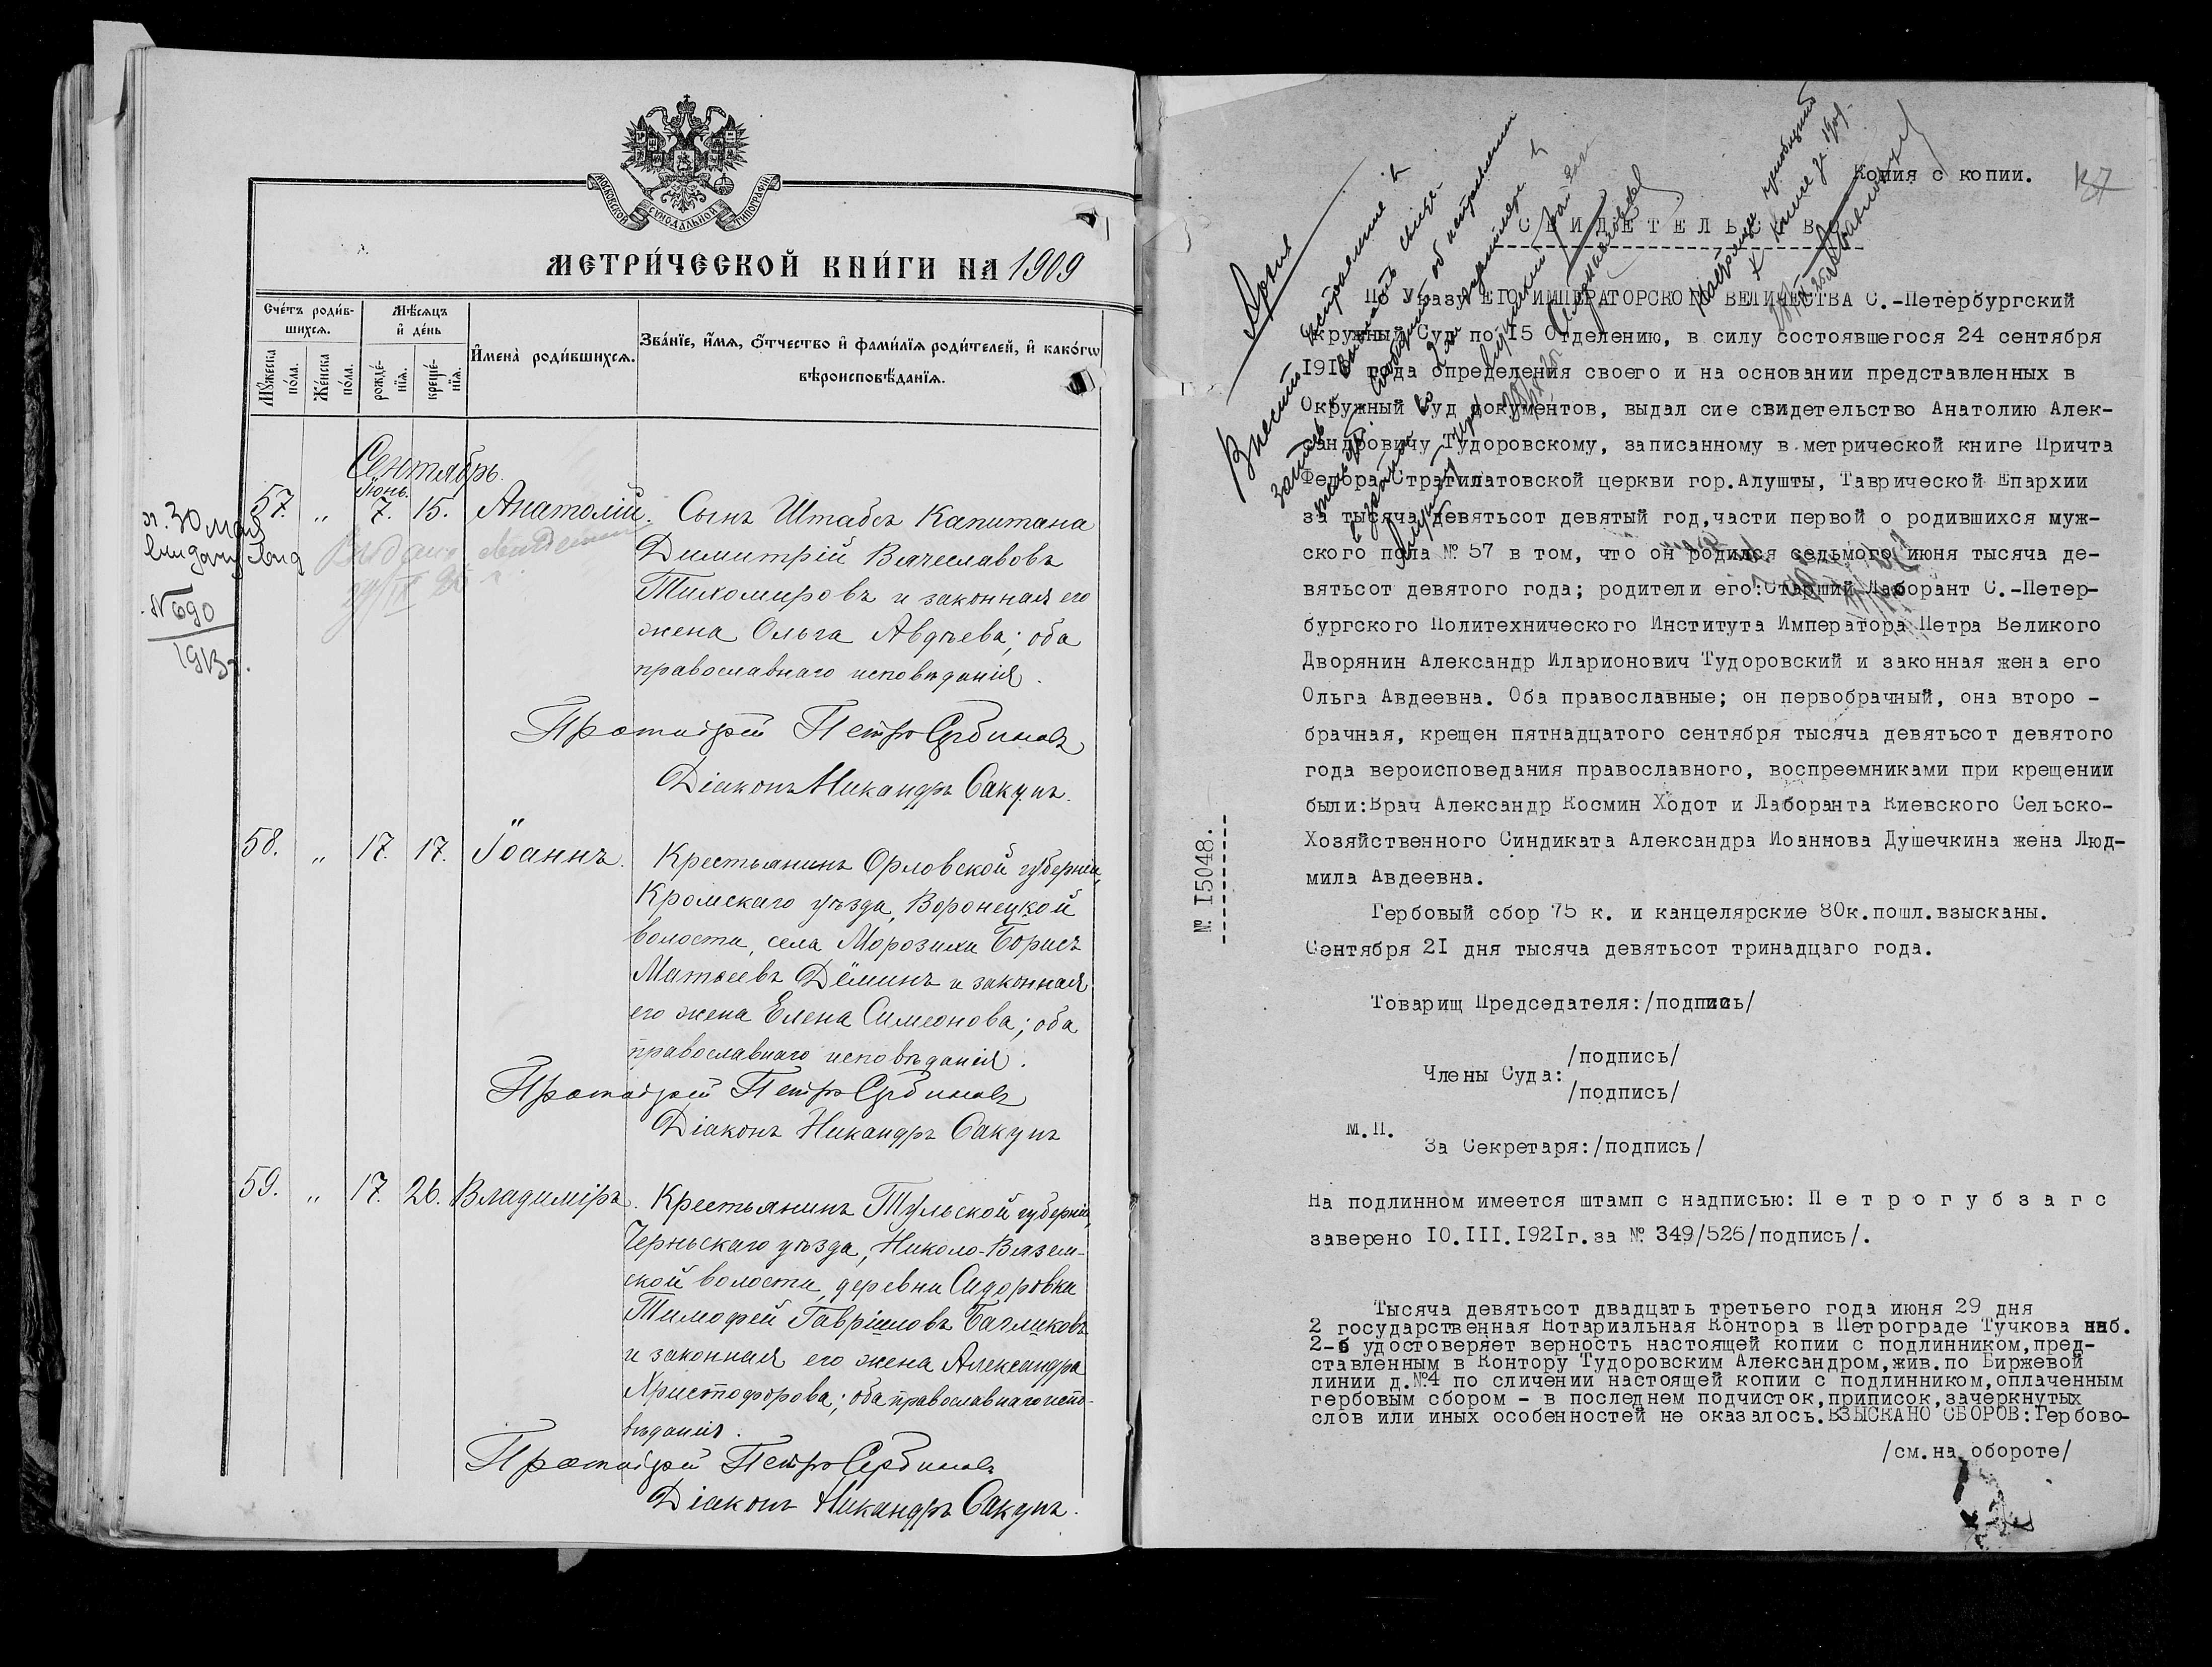 МОСКОВСКОЙ СѴНОДАЛЬНОЙ ТИПОГРАФІИ
МЕТРИ́ЧЕСКОЙ КНИ́ГИ НА 1909
Сче́тъ роди́в-
шихся.
Мѣ́сяцъ
и҆ де́нь
И҆мена̀ роди́вшихся.
Зва́нїе, и҆́мя, ѻ҆́тчество и҆ фами́лїя роди́телей, и҆ како́гѡ
вѣроисповѣ́данїя.
Мꙋ́жеска
по́ла.
Же́нска
по́ла.
рожде́-
нїя.
креще́-
нїя.
Сентябрь.
Іюнь.
57. „ 7. 15. Анатолій. Сынъ Штабсъ Капитана
Димитрій Вячеславовъ
Тихомировъ и законная его
жена Ольга Авдѣева; оба
православнаго исповѣданія.
30 мая
выдану свид
№ 690
1913г.
Выдано
Протоіерей Петръ Сербиновъ
Діаконъ Никандръ Сакунъ.
58. „ 17. 17. Іоаннъ. Крестьянинъ Орловской губерніи,
Кромскаго уѣзда, Воронецкой
волости, села Морозихи Борисъ
Матѳеевъ Дёминъ и законная
его жена Елена Симеонова; оба
православнаго исповѣданія.
Протоіерей Петръ Сербиновъ
Діаконъ Никандръ Сакунъ
59. „ 17. 26. Владиміръ. Крестьянинъ Тульской губерніи,
Черньскаго уѣзда, Николо-Вязем-
ской волости, деревни Сидоровки
Тимофей Гавріиловъ Багликовъ
и законная его жена Александра
Христофорова; оба православнаго испо-
вѣданія.
Протоіерей Петръ Сербиновъ
Діаконъ Никандръ Сакунъ.
Копия с копии.
37
СВИДЕТЕЛЬСТВО
По Указу ЕГО ИМПЕРАТОРСКОГО ВЕЛИЧЕСТВА С.-Петербургский
Окружный Суд по 15 Отделению, в силу состоявшегося 24 сентября
191 года определения своего и на основании представленных в
Окружный Суд документов, выдал сие свидетельство Анатолию Алек-
сандровичу Тудоровскому, записанному в метрической книге Причта
Федора Стратилатовской церкви гор.Алушты, Таврической Епархии
за тысяча девятьсот девятый год,части первой о родившихся муж-
ского пола № 57 в том, что он родился седьмого июня тысяча де-
вятьсот девятого года; родители его:Старший Лаборант С.-Петер-
бургского Политехнического Института Императора Петра Великого
Дворянин Александр Иларионович Тудоровский и законная жена его
Ольга Авдеевна. Оба православные; он первобрачный, она второ -
брачная, крещен пятнадцатого сентября тысяча девятьсот девятого
года вероисповедания православного, воспреемниками при крещении
были:Врач Александр Космин Ходот и Лаборанта Киевского Сельско-
Хозяйственного Синдиката Александра Иоаннова Душечкина жена Люд-
мила Авдеевна.
Гербовый сбор 75 к. и канцелярские 80к.пошл.взысканы.
Сентября 21 дня тысяча девятьсот тринадцаго года.
№ 15048.
Товарищ Председателя:/подпись/
/подпись/
Члены Суда:
/подпись/
М.П.
За Секретаря:/подпись/
На подлинном имеется штамп с надписью: Петрогубзагс
заверено 10.III.1921г.за № 349/526/подпись/.
Тысяча девятьсот двадцать третьего года июня 29 дня
2 государственная Нотариальная Контора в Петрограде Тучкова наб.
2-6 удостоверяет верность настоящей копии с подлинником,пред-
ставленным в Контору Тудоровским Александром,жив.по Биржевой
линии д.№4 по сличении настоящей копии с подлинником,оплаченным
гербовым сбором - в последнем подчисток,приписок,зачеркнутых
слов или иных особенностей не оказалось.ВЗЫСКАНО СБОРОВ:Гербово-
/см.на обороте/